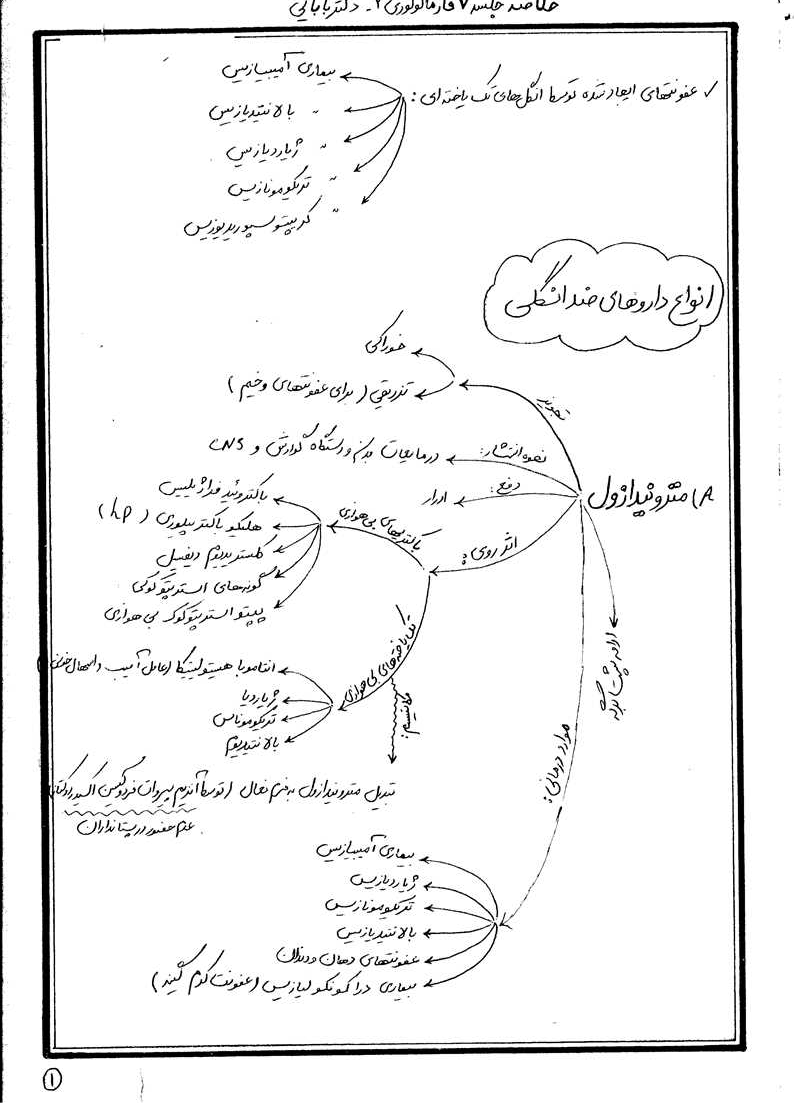 خلاصه جلسه ۷ فارماکولوژی ۲ - دکتر بابایی
✓ عفونتهای ایجاد شده توسط انگل‌های تک یاخته ای:
بیماری آمیبیازیس
" بالانتیدیازیس
" ژیاردیازیس
" تریکومونازیس
" کریپتوسپوریدیوزیس
انواع داروهای ضد انگلی
A) مترونیدازول
تجویز
خوراکی
تزریقی (برای عفونتهای وخیم)
نحوه انتشار: در مایعات بدن و دستگاه گوارش و CNS
دفع: ادرار
اثر روی:
باکتریهای بی هوازی
باکتروئید فراژیلیس
هلیکوباکتر پیلوری (hp)
کلستریدیوم دیفیسیل
گونه‌های استرپتوکوکی
پپتواسترپتوکوک بی هوازی
تک یاخته‌های بی هوازی
انتاموبا هیستولیتیکا (عامل آمیب و اسهال خونی)
ژیاردیا
تریکوموناس
بالانتیدیوم
مکانیسم:
تبدیل مترونیدازول به فرم فعال (توسط آنزیم پیروات فردوکسین اکسیدوردوکتاز
عدم حضور در پستانداران
ادامه پشت برگه
موارد درمانی:
بیماری آمیبیازیس
ژیاردیازیس
تریکومونازیس
بالانتیدیازیس
عفونتهای دهان و دندان
بیماری دراکونکولیازیس (عفونت کرم گینه)
۱